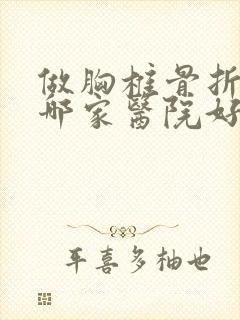 做胸椎骨折
哪家醫院好
平喜多柚也